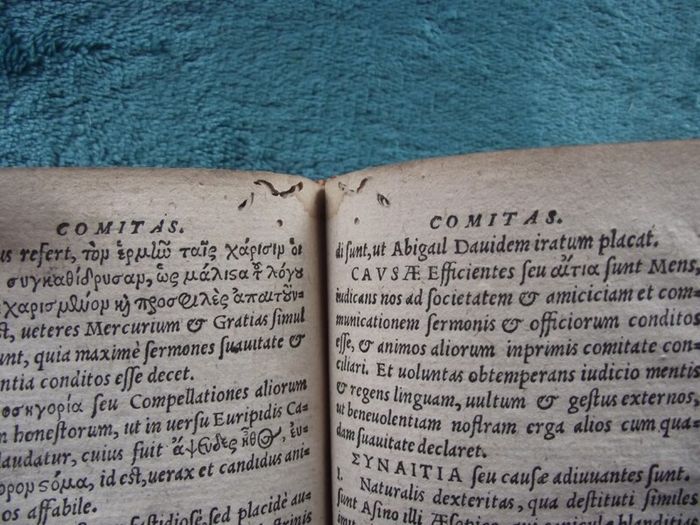 COMITAS.
us refert, τὸν ἑρμῶ ταῖς χάρισιν οἱ
συγκαθίδρυσαν, ὡς μάλιςα τ λόγου
κεχαρισμῶον κὴ προσφιλὲς ἀπαιτοῦν=
st, ueteres Mercurium & Gratias simul
unt, quia maximè sermones suauitate &
ntia conditos esse decet.
οσηγορία seu Compellationes aliorum
n honestorum, ut in uersu Euripidis Ca=
laudatur, cuius fuit ἀψευδὲς ἦθος, εὐ=
ορον σόμα, id est, uerax et candidus ani=
os affabile.
fastidiosè, sed placidè au=
COMITAS.
di sunt, ut Abigail Dauidem iratum placat.
CAVSÆ Efficientes seu αἴτια sunt Mens,
iudicans nos ad societatem & amiciciam et com=
municationem sermonis & officiorum conditos
esse, & animos aliorum inprimis comitate con=
ciliari. Et uoluntas obtemperans iudicio mentis
& regens linguam, uultum & gestus externos,
ut beneuolentiam nostram erga alios cum qua=
dam suauitate declaret.
ΣΥΝΑΙΤΙΑ seu causæ adiuuantes sunt.
1. Naturalis dexteritas, qua destituti similes
sunt Asino illi Æsopico